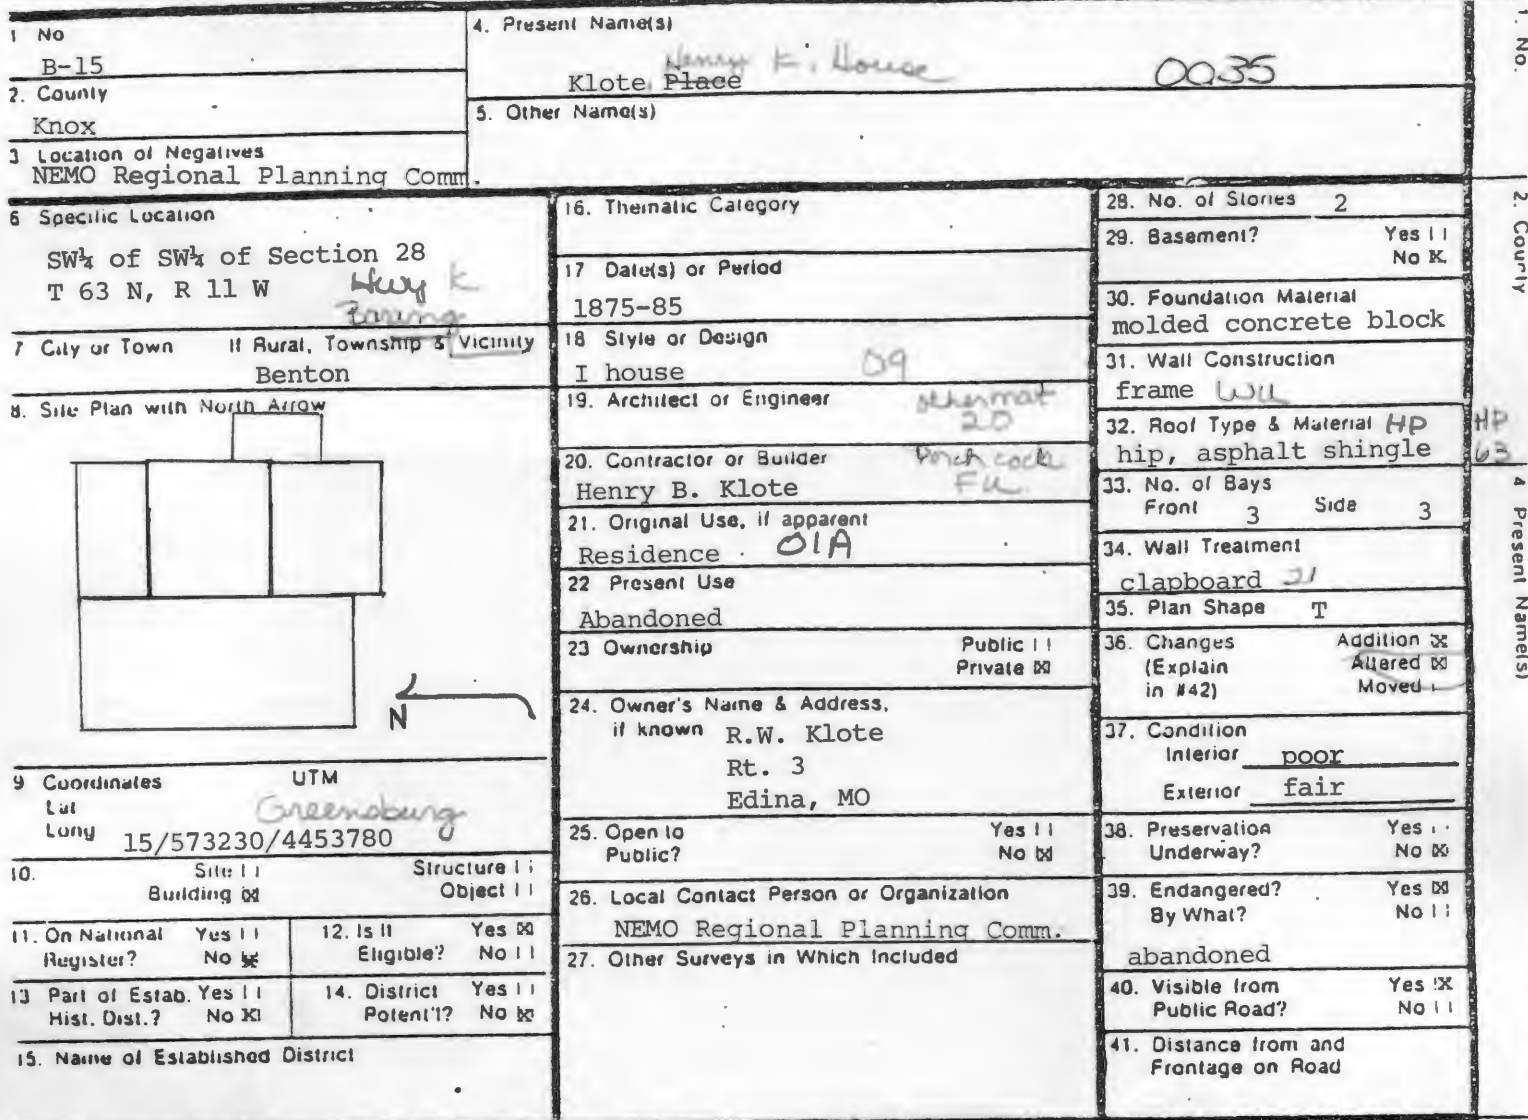 1 No
B-15
2. County
Knox
3 Location of Negatives
NEMO Regional Planning Comm.
4. Present Name(s)
Henry K. House
Klote Place
0035
5. Other Name(s)
6 Specific Location
SW¼ of SW¼ of Section 28
T 63 N, R 11 W
Hwy K
Baring
7 City or Town If Rural, Township & Vicinity
Benton
8. Site Plan with North Arrow
N
9 Coordinates UTM
Lat
Greensburg
Long
15/573230/4453780
10. Site Structure
Building ☒ Object
11. On National Register? Yes No ☒
12. Is It Eligible? Yes ☒ No
13 Part of Estab. Hist. Dist.? Yes No ☒
14. District Potent'l? Yes No ☒
15. Name of Established District
16. Thematic Category
17 Date(s) or Period
1875-85
18 Style or Design
I house 09
19. Architect or Engineer
othermat
20
20. Contractor or Builder
Porch
Henry B. Klote
21. Original Use, if apparent
Residence 01A
22 Present Use
Abandoned
23 Ownership Public
Private ☒
24. Owner's Name & Address,
if known R.W. Klote
Rt. 3
Edina, MO
25. Open to Yes
Public? No ☒
26. Local Contact Person or Organization
NEMO Regional Planning Comm.
27. Other Surveys in Which Included
28. No. of Stories 2
29. Basement? Yes
No X
30. Foundation Material
molded concrete block
31. Wall Construction
frame
32. Roof Type & Material HP
hip, asphalt shingle
33. No. of Bays
Front 3 Side 3
34. Wall Treatment
clapboard 21
35. Plan Shape T
36. Changes Addition ☒
(Explain Altered ☒
in #42) Moved
37. Condition
Interior poor
Exterior fair
38. Preservation Yes
Underway? No ☒
39. Endangered? Yes ☒
By What? No
abandoned
40. Visible from Yes X
Public Road? No
41. Distance from and
Frontage on Road
1. No.
2. County
HP
63
4 Present Name(s)